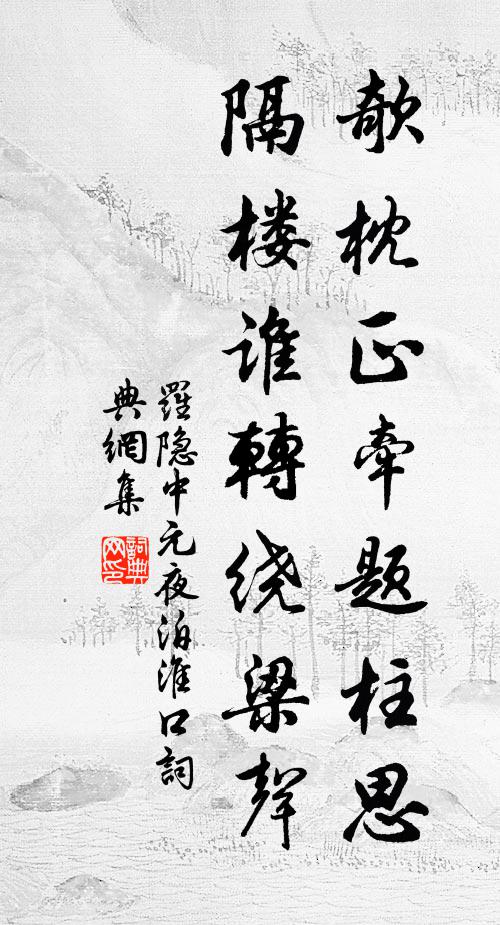 欹枕正牵题柱思
隔楼谁转绕梁声
羅隐中元夜泊淮口詞
典網集
詞典网印